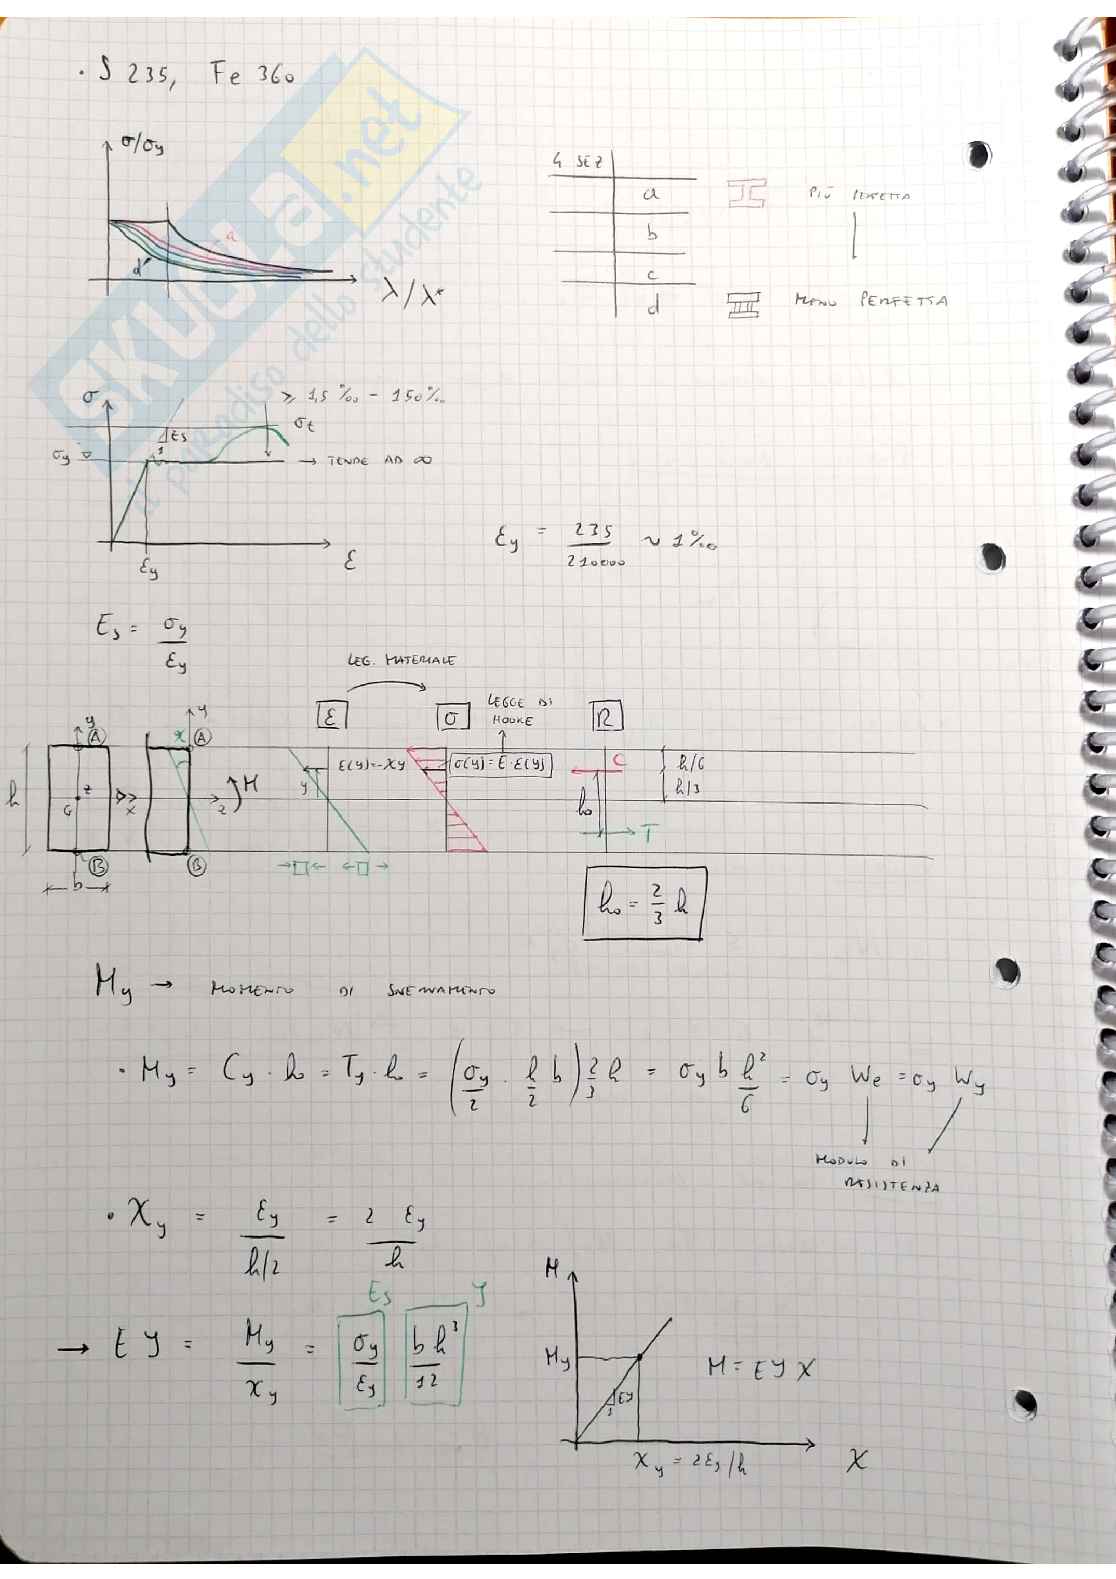 · S 235, Fe 360
σ/σy
a
d
λ/λ*
4 SEZ
a
PIÙ PERFETTA
b
c
d
MENO PERFETTA
SKUOLA.net
il paradiso dello studente
σ
≥ 1,5‰ - 150‰
Es
1
σt
σy
→ TENDE AD ∞
εy
ε
εy = 235/210000 ~ 1‰
Es = σy/εy
LEG. MATERIALE
ε
σ
LEGGE DI
HOOKE
R
y
A
χ
y
A
h
z
G
x
z
M
ε(y)=-χy
y
σ(y)=E·ε(y)
C
h/6
h/3
h₀
T
B
B
b
h₀ = 2/3 h
My → MOMENTO DI SNERVAMENTO
· My = Cy · h₀ = Ty · h₀ = (σy/2 · h/2 b) 2/3 h = σy b h²/6 = σy We = σy Wy
MODULO DI
RESISTENZA
· χy = εy/(h/2) = 2 εy/h
Es
J
→ EJ = My/χy = σy/εy b h³/12
M
My
EJ
1
M = EJ χ
χy = 2εy/h
χ